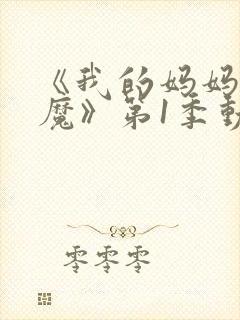 《我的妈妈
魔》第1季动
零零零